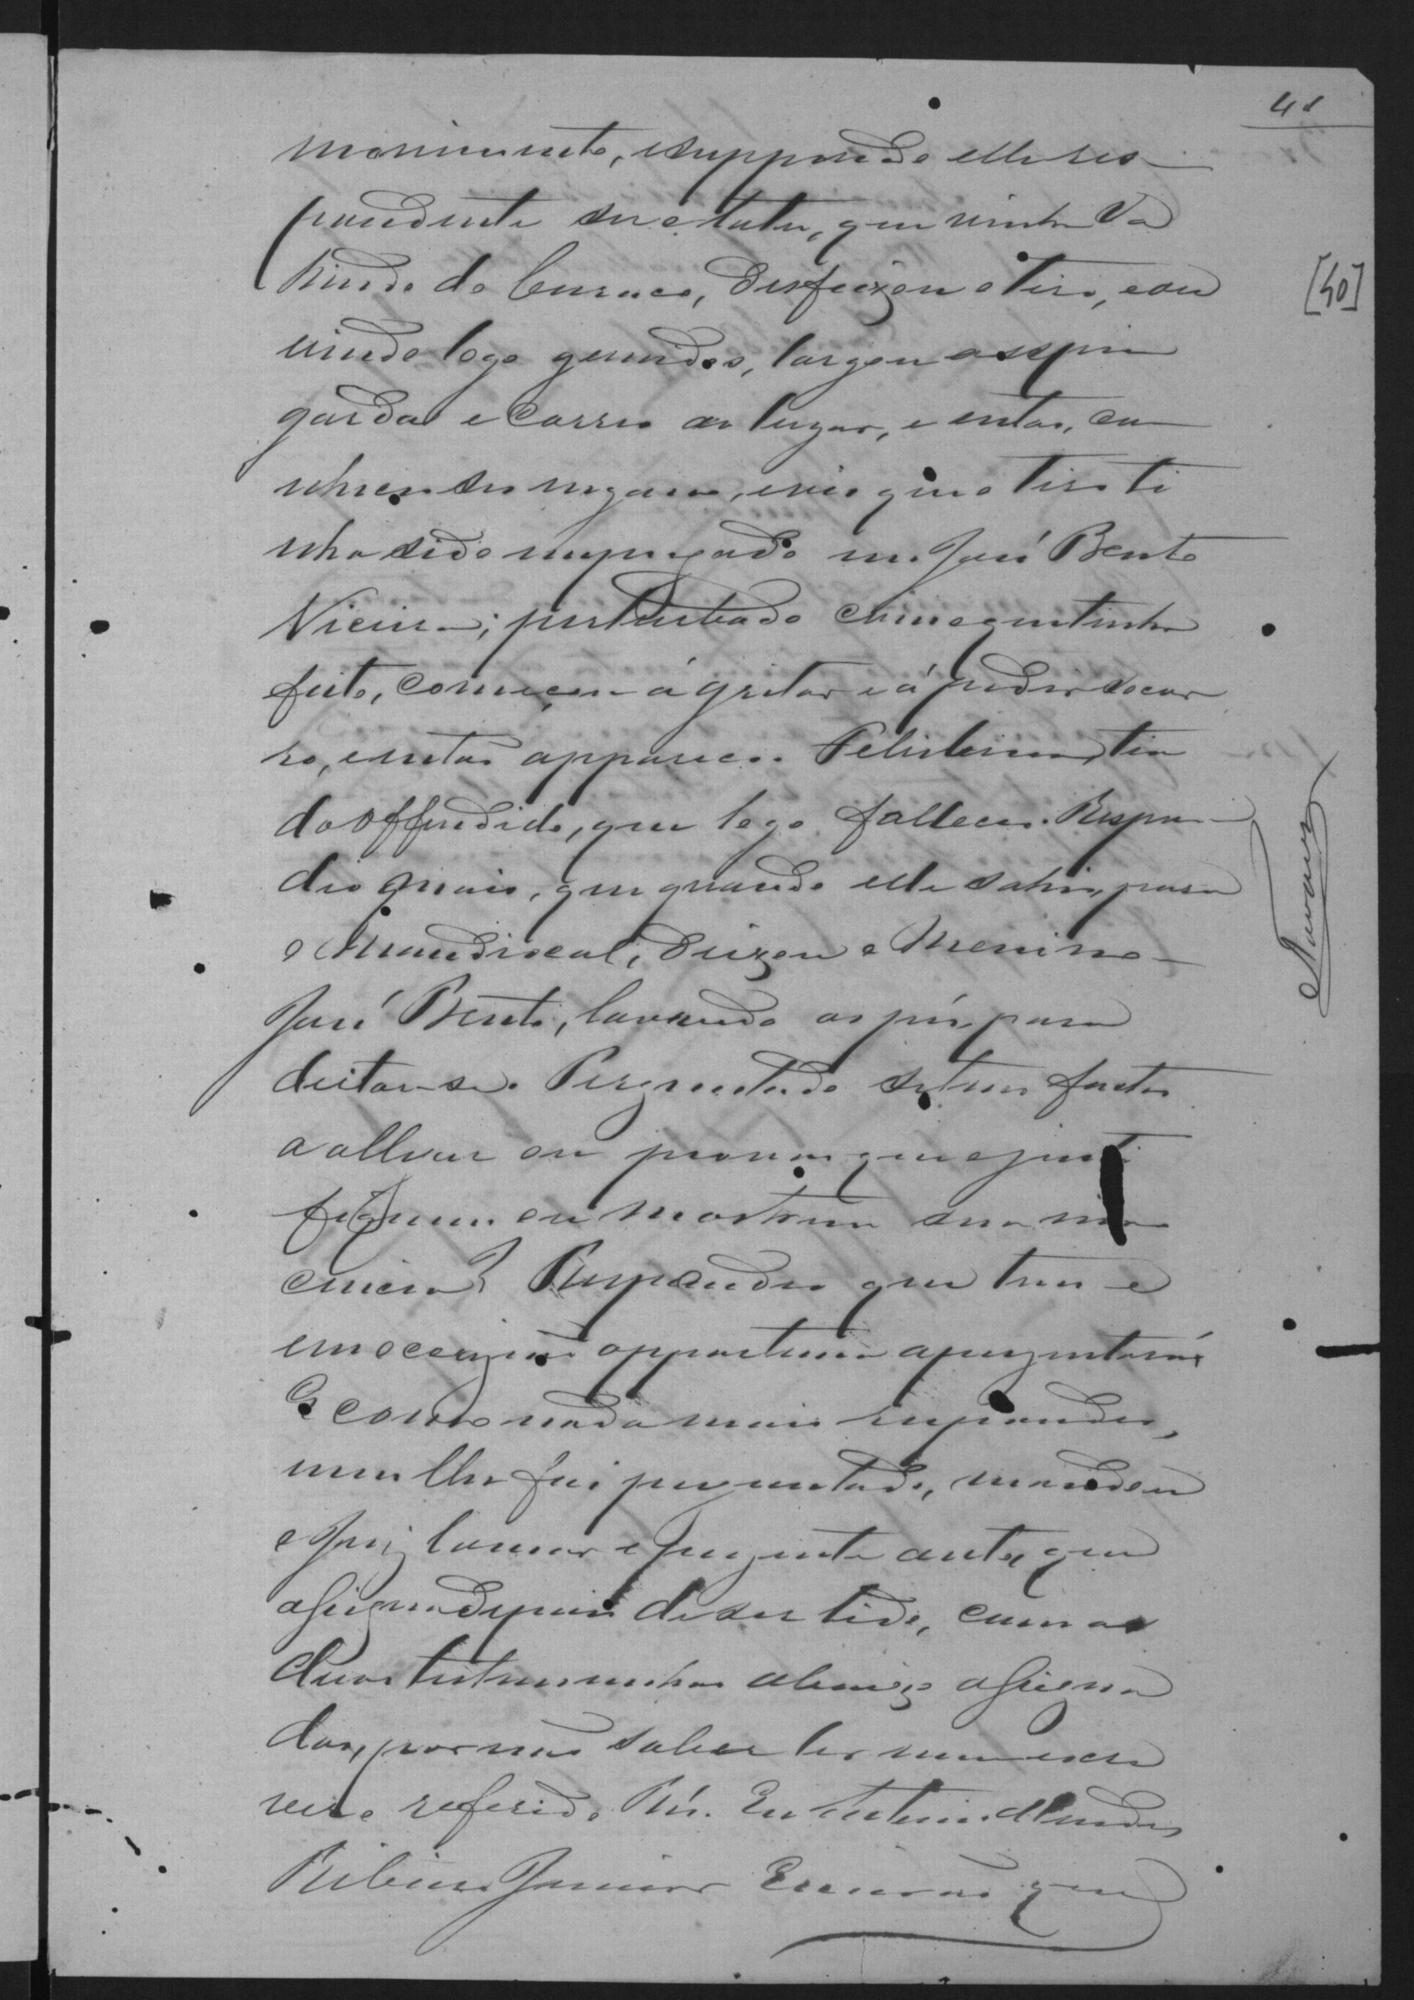 41
[40]
movimento, e suppondo elle res-
pondente ser o tatu, que vinha sa
hindo do buraco, disfeixou o tiro, e ou
vindo logo gemidos, largou a espin
garda e correu ao lugar, e então, co
nheceu seu engano, e viu que o tiro ti
nha sido empregado em José Bento
Vieira; perturbado com o que tinha
feito, começou á gritar e á pedir socor
ro, então appareceu Felisbino, tio
do offendido, que logo falleceu. Respon-
deo mais, que quando elle sahio, para
o Mandiocal, deixou o Menino
José Bento, lavando os pés, para
deitar-se. Perguntado se tem factos
a allegar ou provas que o justi
fiquem ou mostrem sua inno
cencia? Respondeo que tem e
em occazião opportuna aprezentará
E como nada mais respondeo,
nem lhe foi perguntado, mandou
o Juiz lavrar o prezente auto, que
assigna depois de ser lido, com as
duas testemunhas abaixo assigna
das, por não saber ler nem escre
ver o referido Réo. Eu Antonio Mendes
Ribeiro Junior Escrivão que
Navarro